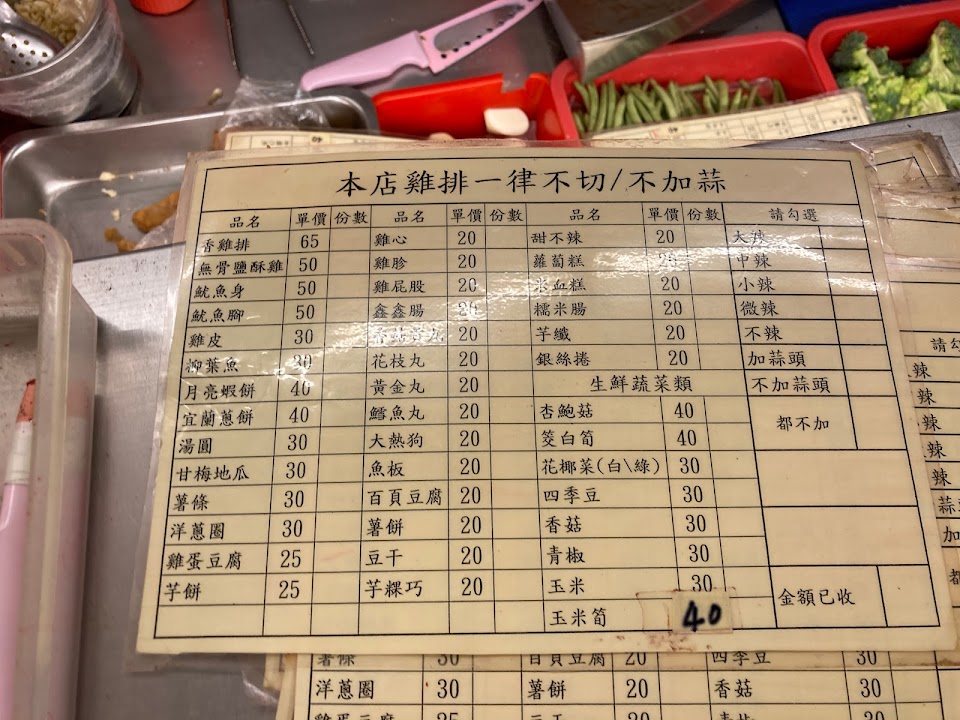 本店雞排一律不切/不加蒜
品名 單價 份數 品名 單價 份數 品名 單價 份數 請勾選
香雞排 65 雞心 20 甜不辣 20 大辣
無骨鹽酥雞 50 雞胗 20 蘿蔔糕 中辣
魷魚身 50 雞屁股 20 米血糕 20 小辣
魷魚腳 50 鑫鑫腸 20 糯米腸 20 微辣
雞皮 30 丸 20 芋纖 20 不辣
柳葉魚 30 花枝丸 20 銀絲捲 20 加蒜頭
月亮蝦餅 40 黃金丸 20 生鮮蔬菜類 不加蒜頭
宜蘭蔥餅 40 鱈魚丸 20 杏鮑菇 40 都不加
湯圓 30 大熱狗 20 筊白筍 40
甘梅地瓜 30 魚板 20 花椰菜(白\綠) 30
薯條 30 百頁豆腐 20 四季豆 30
洋蔥圈 30 薯餅 20 香菇 30
雞蛋豆腐 25 豆干 20 青椒 30
芋餅 25 芋粿巧 20 玉米 30 金額已收
玉米筍 40
請勾
辣
辣
辣
辣
辣
蒜
加
都
薯條 30 百頁豆腐 20 四季豆 30
洋蔥圈 30 薯餅 20 香菇 30
雞蛋豆腐 25 豆干 20 青椒 30